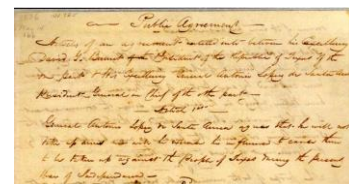 Public Agreement
Articles of an agreement entered into between his Excellency
David G. Burnet of the Republic of Texas of the
one part & His Excellency General Antonio Lopez de Santa Anna
President General in Chief of the other part
Article 1st
General Antonio Lopez de Santa Anna agrees that he will not
take up arms nor will he his influence to cause them
to be taken up against the People of Texas during the present
War of Independence